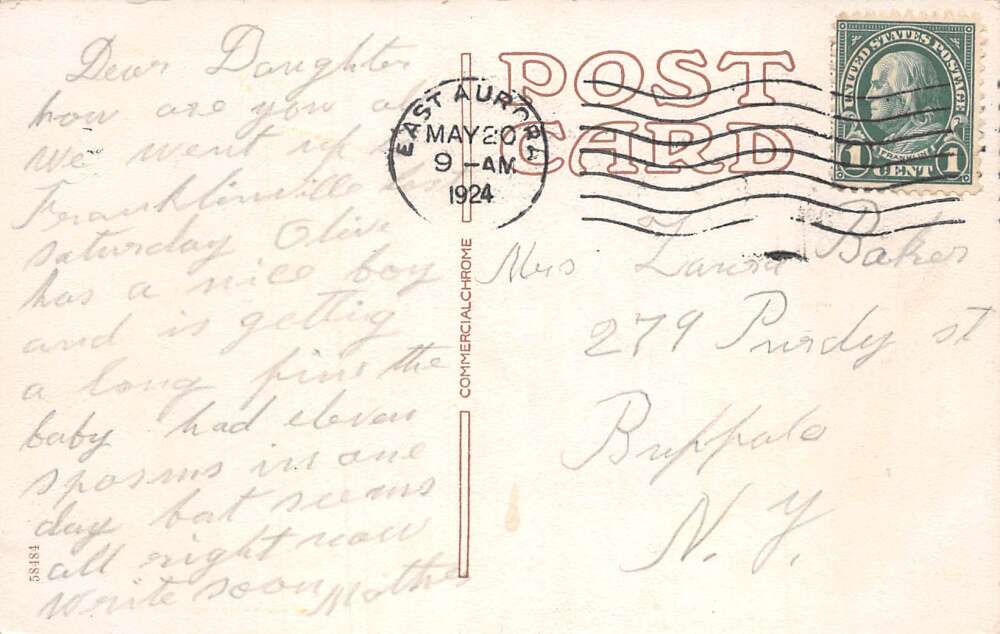 Dear Daughter
how are you all
we went up to
Franklinville last
saturday Olive
has a nice boy
and is gettig
a long fine the
baby had eleven
spasms in one
day but seems
all right now
write soon Mother
58484
COMMERCIALCHROME
POST
CARD
EAST AURORA
MAY 20
9 - AM
1924
UNITED STATES POSTAGE
FRANKLIN
1 CENT 1
Mrs Laura Baker
279 Purdy st
Buffalo
N. Y.